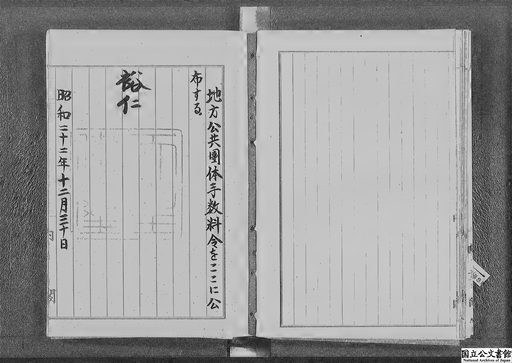 地方公共団体手数料令をここに公
布する
裕仁
昭和二十二年十二月三十日
内
閣
国立公文書館
National Archives of Japan